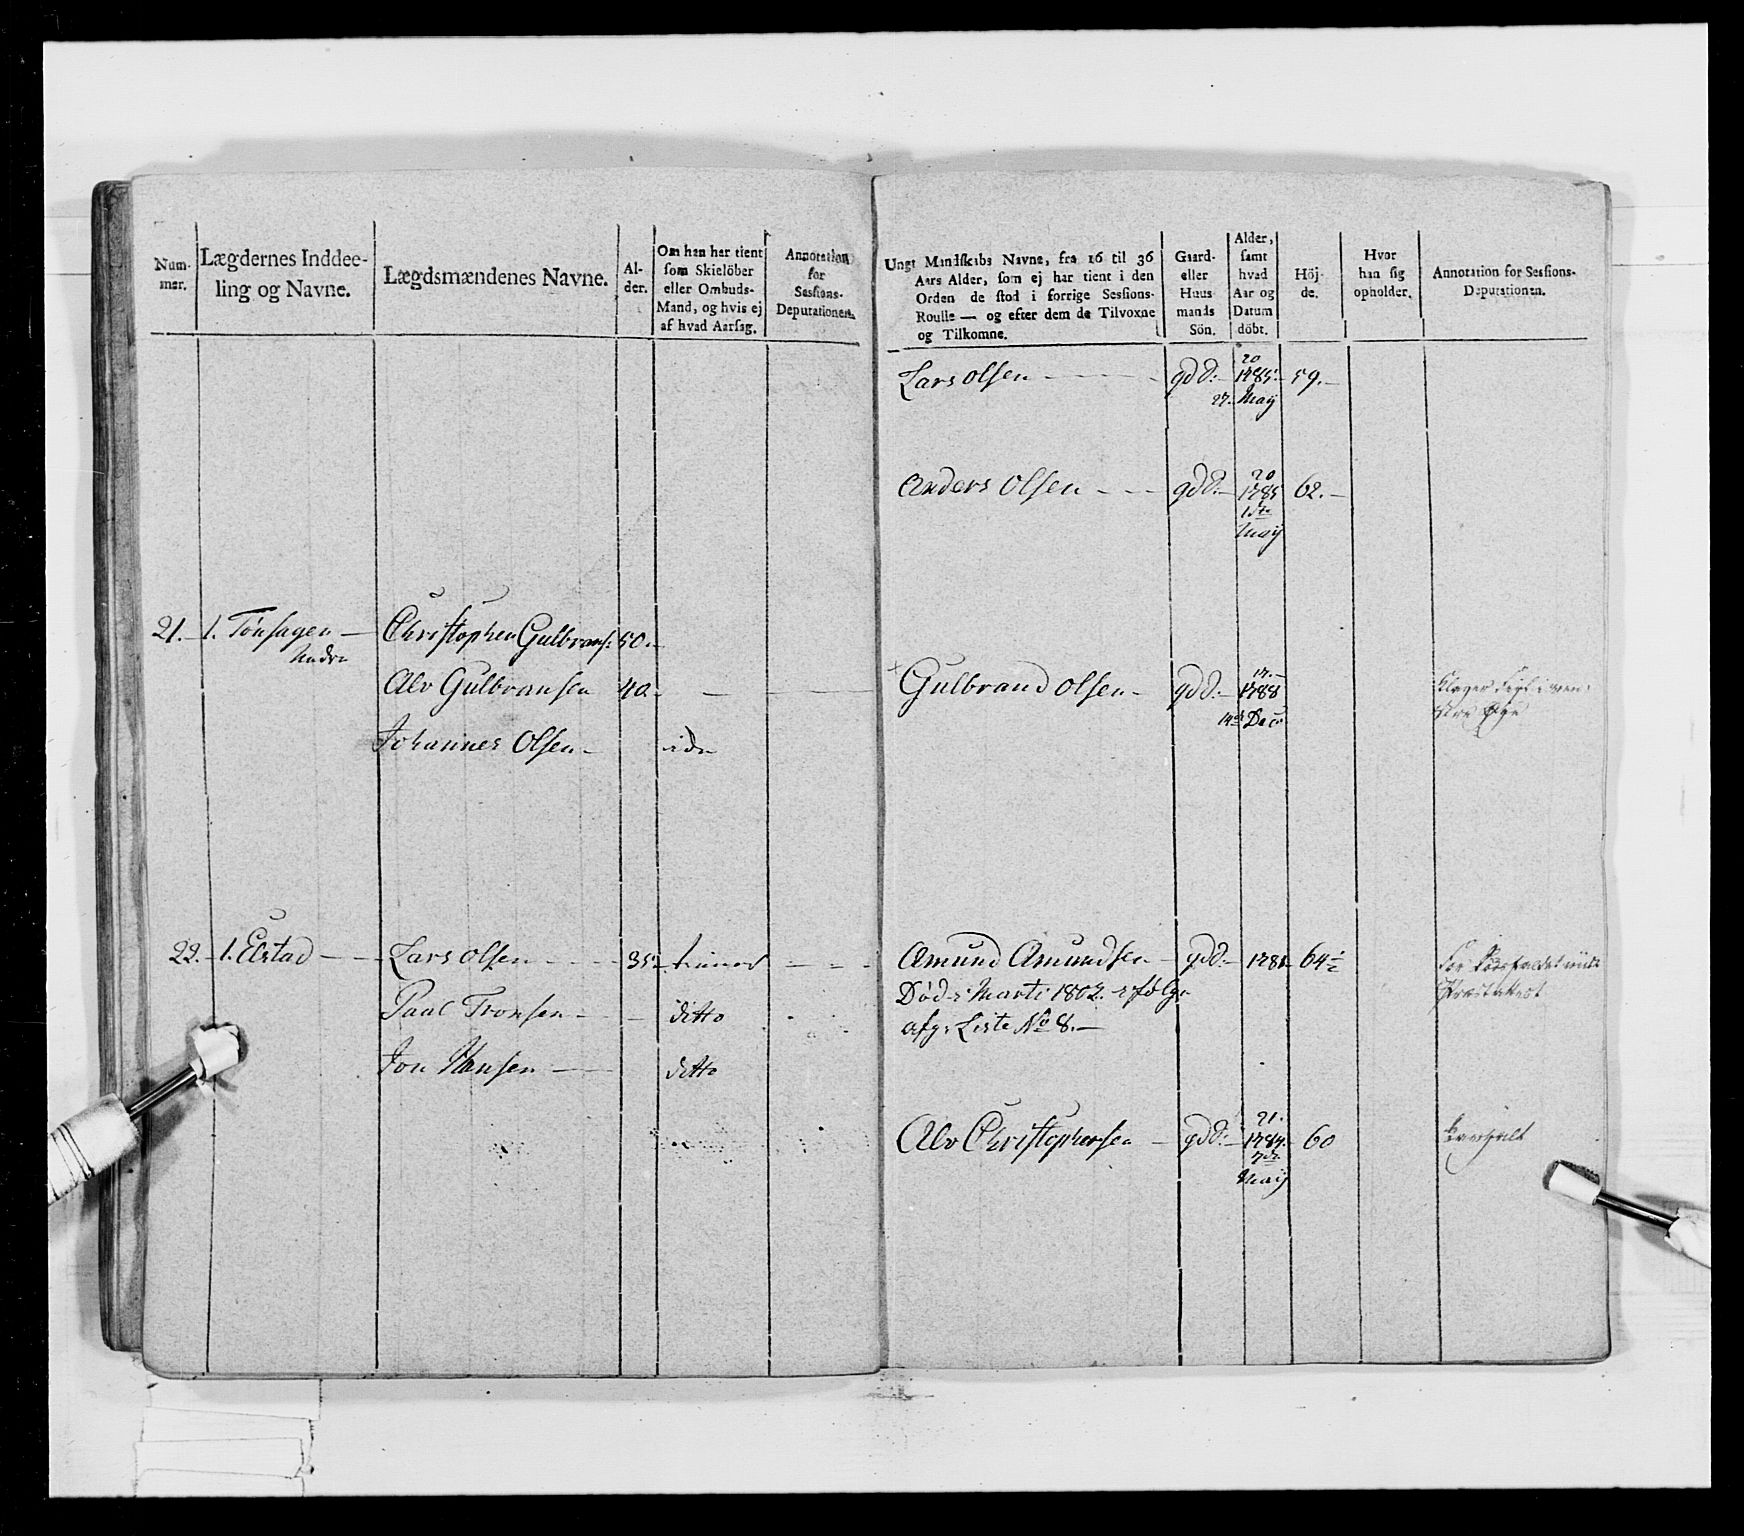 Num-
mer.
Lægdernes Inddee-
ling og Navne.
Lægdsmændenes Navne.
Al-
der.
Om han har tient
som Skielöber
eller Ombuds-
Mand, og hvis ej
af hvad Aarsag.
Annotation
for
Sessions-
Deputationen.
21. 1. Tönsagen — Christophen Gulbrans: 50.-
Nedre
Alv Gulbransen 40.-
Johannes Olsen -
22. 1. Elstad — Lars Olsen 35
Paal Tronsen - ditto
Jon Hansen — ditto
Ungt Mandskabs Navne, fra 16 til 36
Aars Alder, som ej har tient i den
Orden de stod i forrige Sessions-
Roulle — og efter dem de Tilvoxne
og Tilkomne.
Gaard-
eller
Huus
mands
Sön.
Alder,
samt
hvad
Aar og
Datum
döbt.
Höj-
de.
Hvor
han sig
opholder.
Annotation for Sessions-
Deputationen.
20
Lars Olsen gdS:- 1785- 59.-
27. Maij
20
Anders Olsen gdS:- 1785 62.-
1ste
Maij
17.-
Gulbrand Olsen - gdS:- 1788
14de Decr
Amund Amundsen - gdS:- 1781 64½
Död i Marti 1802. efölge
afg. Liste No 8.-
21.
Alv Christophersen - gdS:- 1784. 60
7de
Maij